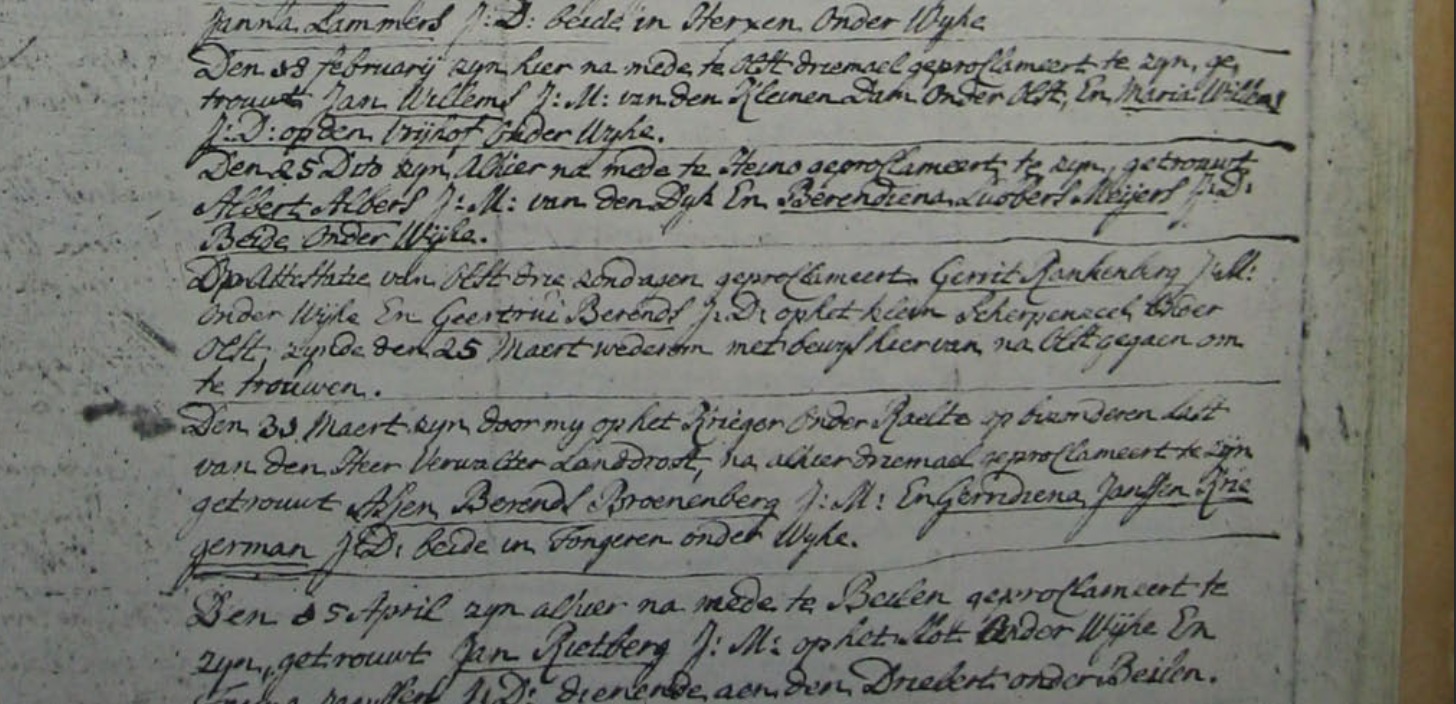 Janna Lammers J: D: beide in Herxen Onder Wyhe
Den 18 februarij zyn hier na mede te Olst driemael geproclameert te zyn, ge
trouwt Jan Willems J: M: van den Kleinen Dam Onder Olst, En Maria Willems
J: D: op den Vrijhof Onder Wyhe.
Den 25 Dito zyn Alhier na mede te Heino geproclameert te zyn, getrouwt
Albert Albers J: M: van den Dyk En Berendiena Lubbers Meijers J: D:
Beide Onder Wijhe.
Op Attestatie van Olst drie zondagen geproclameert Gerrit Rankenberg J: M:
onder Wyhe En Geertrui Berends J: D: op het klein Scherpenzeel Onder
Olst, zynde den 25 Maert wederom met bewys hiervan na Olst gegaen om
te trouwen.
Den 31 Maert zyn door my op het Krieger Onder Raelte op bizonderen last
van den Heer Verwalter Landdrost, na alhier driemael geproclameert te zijn
getrouwt Asjen Berends Broenenberg J: M: En Gerridiena Janssen Krie
german J: D: beide in Tongeren onder Wyhe.
Den 15 April zyn alhier na mede te Beilen geproclameert te
zyn, getrouwt Jan Rietberg J: M: op het Slot Onder Wijhe En
Janssen J: D: dienende aen den Driebert onder Beilen.